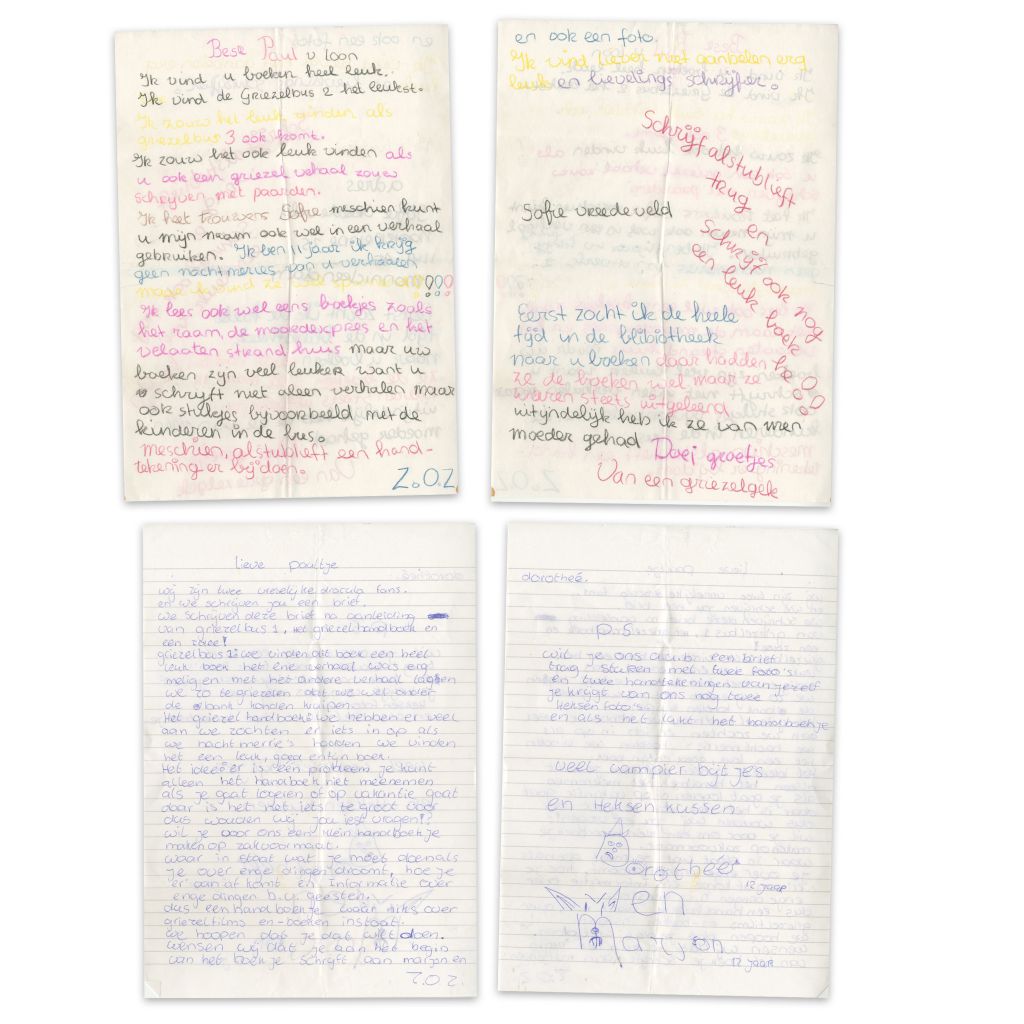 Beste Paul v Loon
Ik vind u boeken heel leuk.
Ik vind de Griezelbus 2 het leukst.
Ik zouw het leuk vinden als
griezelbus 3 ook komt.
Ik zouw het ook leuk vinden als
u ook een griezel vehaal zouw
schrijven met paarden.
Ik heet trouwens Sofie meschien kunt
u mijn naam ook wel in een verhaal
gebruiken. Ik ben 11 jaar ik krijg
geen nachtmeries van u verhaalen
maar ik vind ze wel spannend!!!
Ik lees ook wel eens boekjes zoals
het raam, de moordexpres en het
velaaten strand huis maar uw
boeken zijn veel leuker want u
schrijft niet aleen verhalen maar
ook stukjes bijvoorbeeld met de
kinderen in de bus.
meschien, alstublieft een hand-
tekening er bij doen.
Z.O.Z
en ook een foto.
Ik vind liever niet aanbelen erg
leuk en lievelings schrijfer.
Schrijf alstublieft
trug
en
Schrijf ook nog
een leuk boek he!!
Sofie vredeveld
Eerst zocht ik de heele
tijd in de blibiotheek
naar u boeken daar hadden
ze de boeken wel maar ze
waren steets uitgeleend
uitijndelijk heb ik ze van men
moeder gehad Doei groetjes
Van een griezelgek
lieve paultje
wij zijn twee vreselijke dracula fans.
en we schrijven jou een brief.
we schrijven deze brief na aanleiding
van griezelbus 1, het griezelhandboek en
een idee!
griezelbus 1: we vinden dit boek een heel
leuk boek het éne verhaal was erg
melig en met het andere verhaal lagen
we zo te griezelen dat we wel onder
de bank konden kruipen.
Het griezel handboek: we hebben er veel
aan we zochten er iets in op als
we nachtmerrie's hadden we vinden
het een leuk, goed en fijn boek.
Het idee: er is een probleem je kunt
alleen het handboek niet meenemen
als je gaat logeren of op vakantie gaat
daar is het net iets te groot voor
dus wouden wij jou iest vragen!!
wil je voor ons een klein handboekje
maken op zakvoormaat.
waar in staat wat je moet doen als
je over enge dingen droomt, hoe je
er aan af komt en informatie over
enge dingen b.v. geesten.
dus een handboekje waar niks over
griezelfilms en-boeken instaat.
we hoopen dat je dat wilt doen.
wensen wij dat je aan het begin
van het boekje schrijft aan marjon en
Z.O.Z.
dorotheé.
P.S
wil je ons a.u.b. een brief
trug sturen met twee foto's
en twee handtekeningen van jezelf
je krijgt van ons nog twee
heksen foto's
en als het lukt het handboekje
veel vampier bijtjes
en Heksen kussen
Dorotheé
12 jaar
en
Marjon
12 jaar